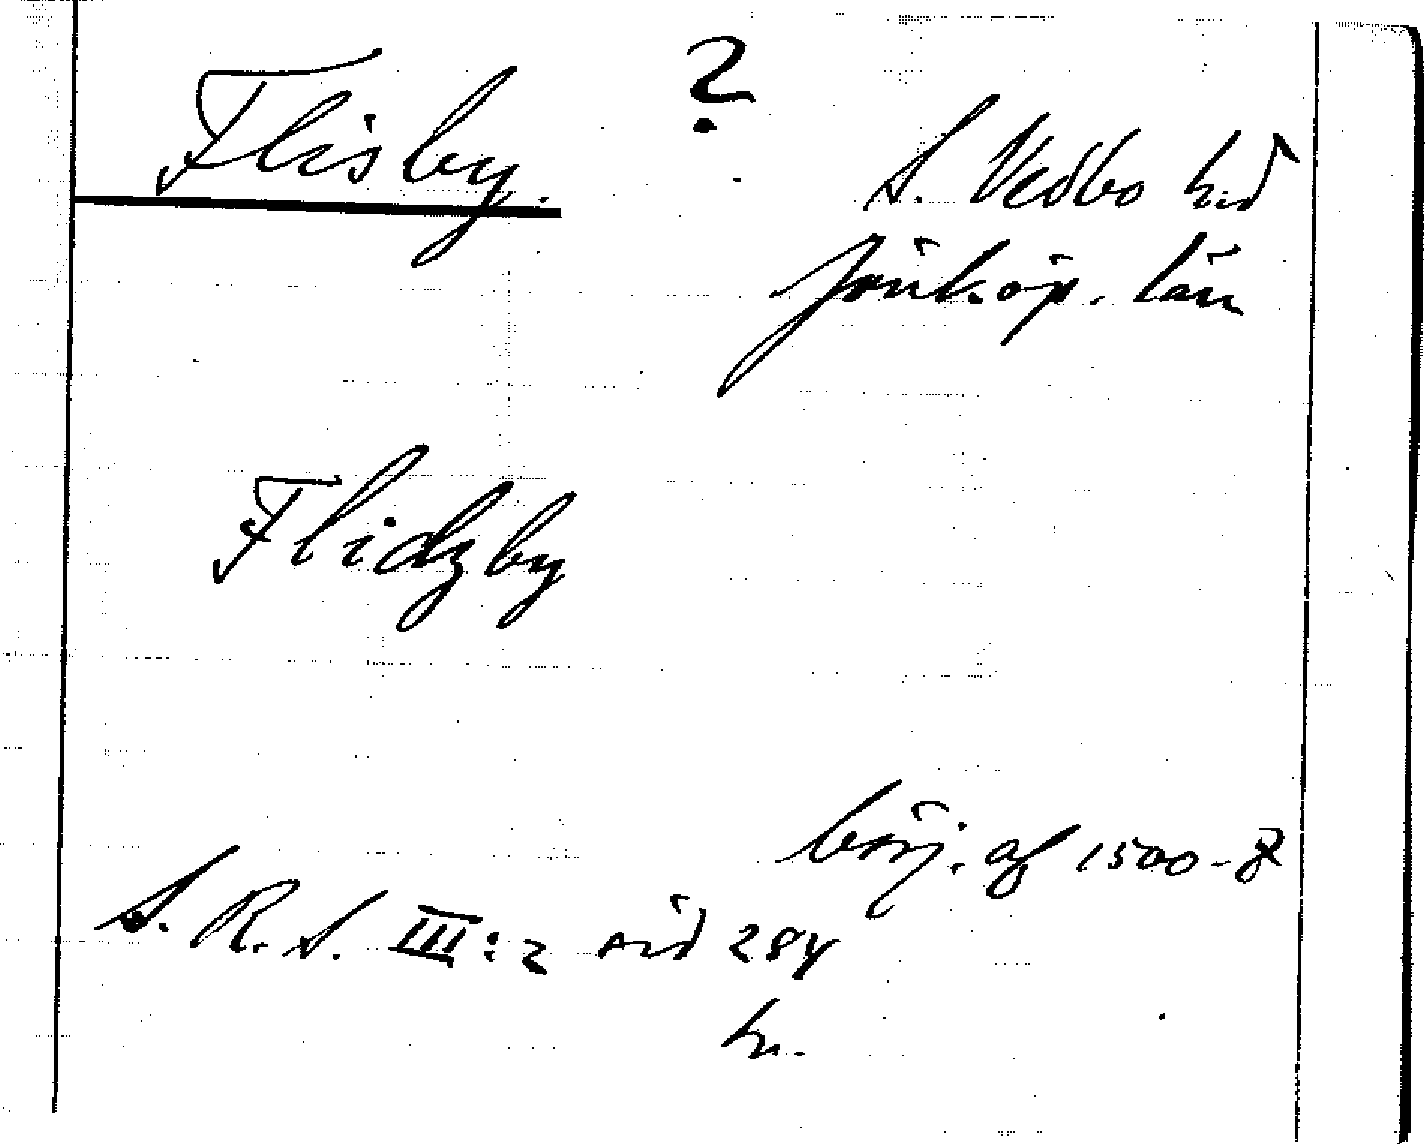 Flisby. ?
S. Vedbo hd
Jönköp. län
Flidzby
börj. af 1500-t
S. R. S. III:2 sid 284
h.